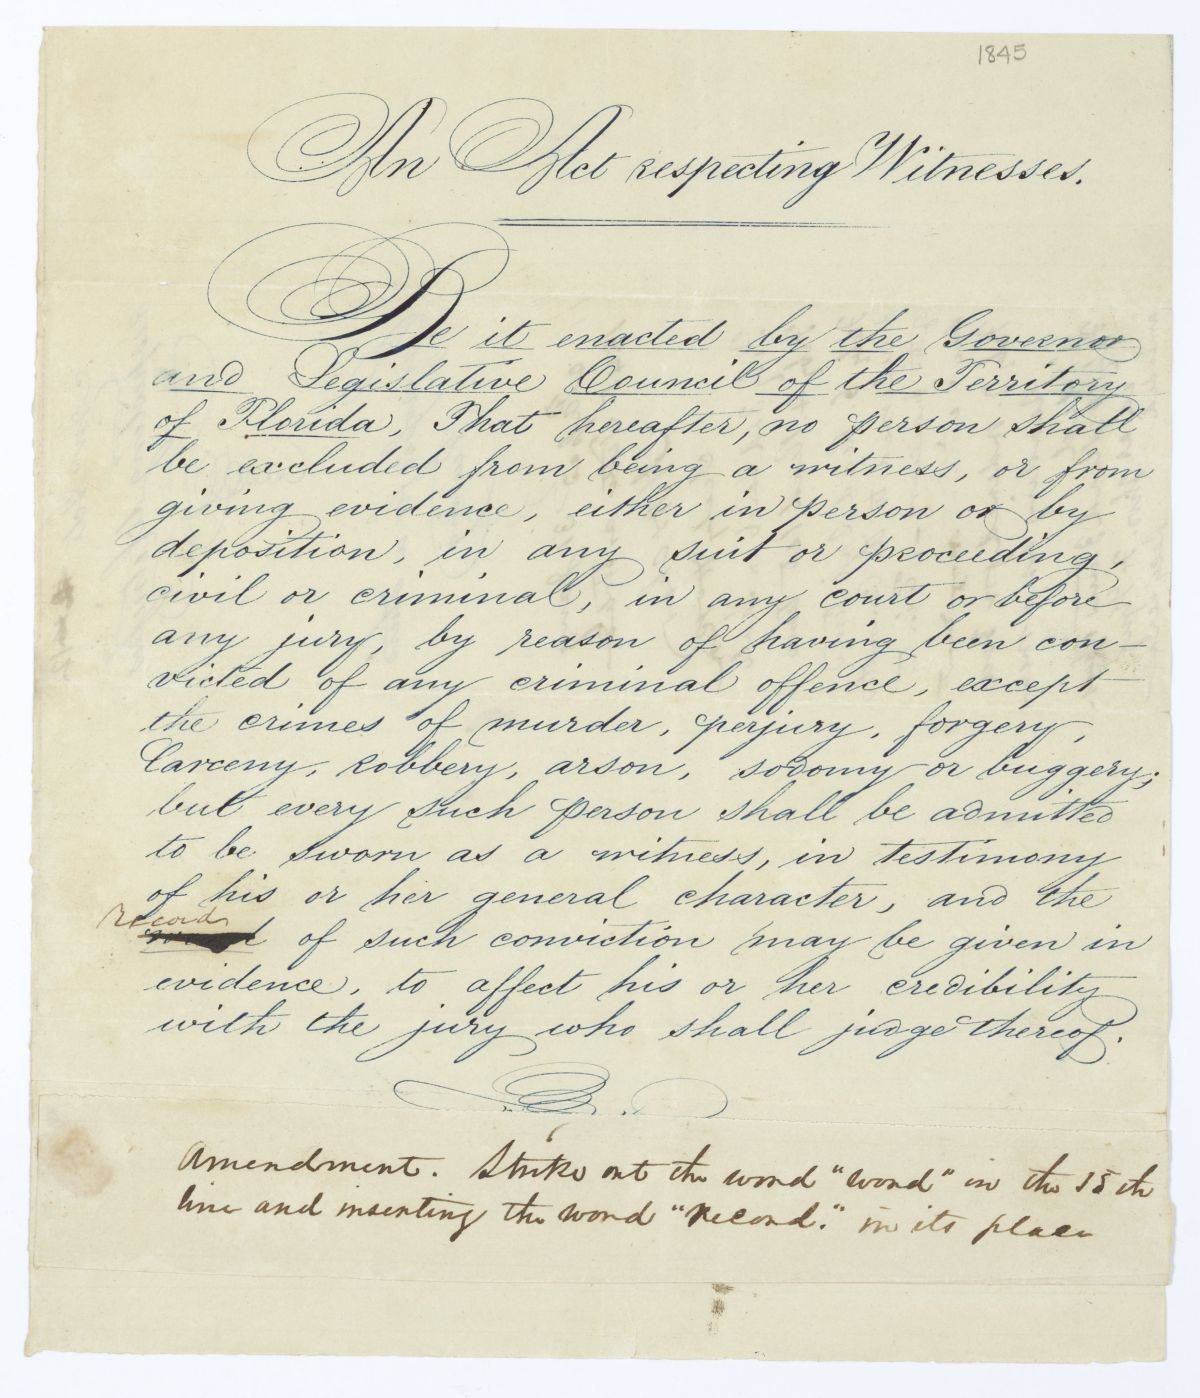 1845
An Act respecting Witnesses.
Be it enacted by the Governor
and Legislative Council of the Territory
of Florida, That hereafter, no person shall
be excluded from being a witness, or from
giving evidence, either in person or by
deposition, in any suit or proceeding,
civil or criminal, in any court or before
any jury, by reason of having been con-
victed of any criminal offence, except
the crimes of murder, perjury, forgery,
larceny, robbery, arson, sodomy or buggery;
but every such person shall be admitted
to be sworn as a witness, in testimony
of his or her general character, and the
record
of such conviction may be given in
evidence, to affect his or her credibility
with the jury who shall judge thereof.
Amendment. Strike out the word "word" in the 15th
line and inserting the word "record." in its place